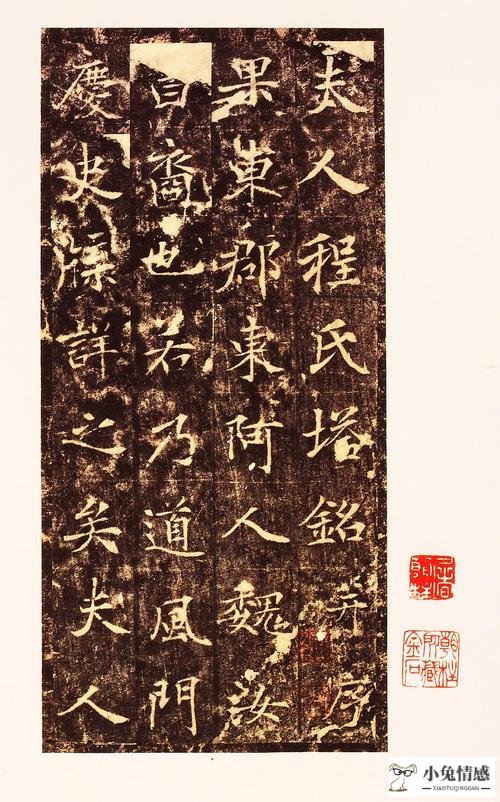 夫人程氏塔銘并序
果東郡東阿人魏汝
裔也若乃道風門
慶史牒詳之矣夫人
小兔情感
XIAOTUQINGGAN